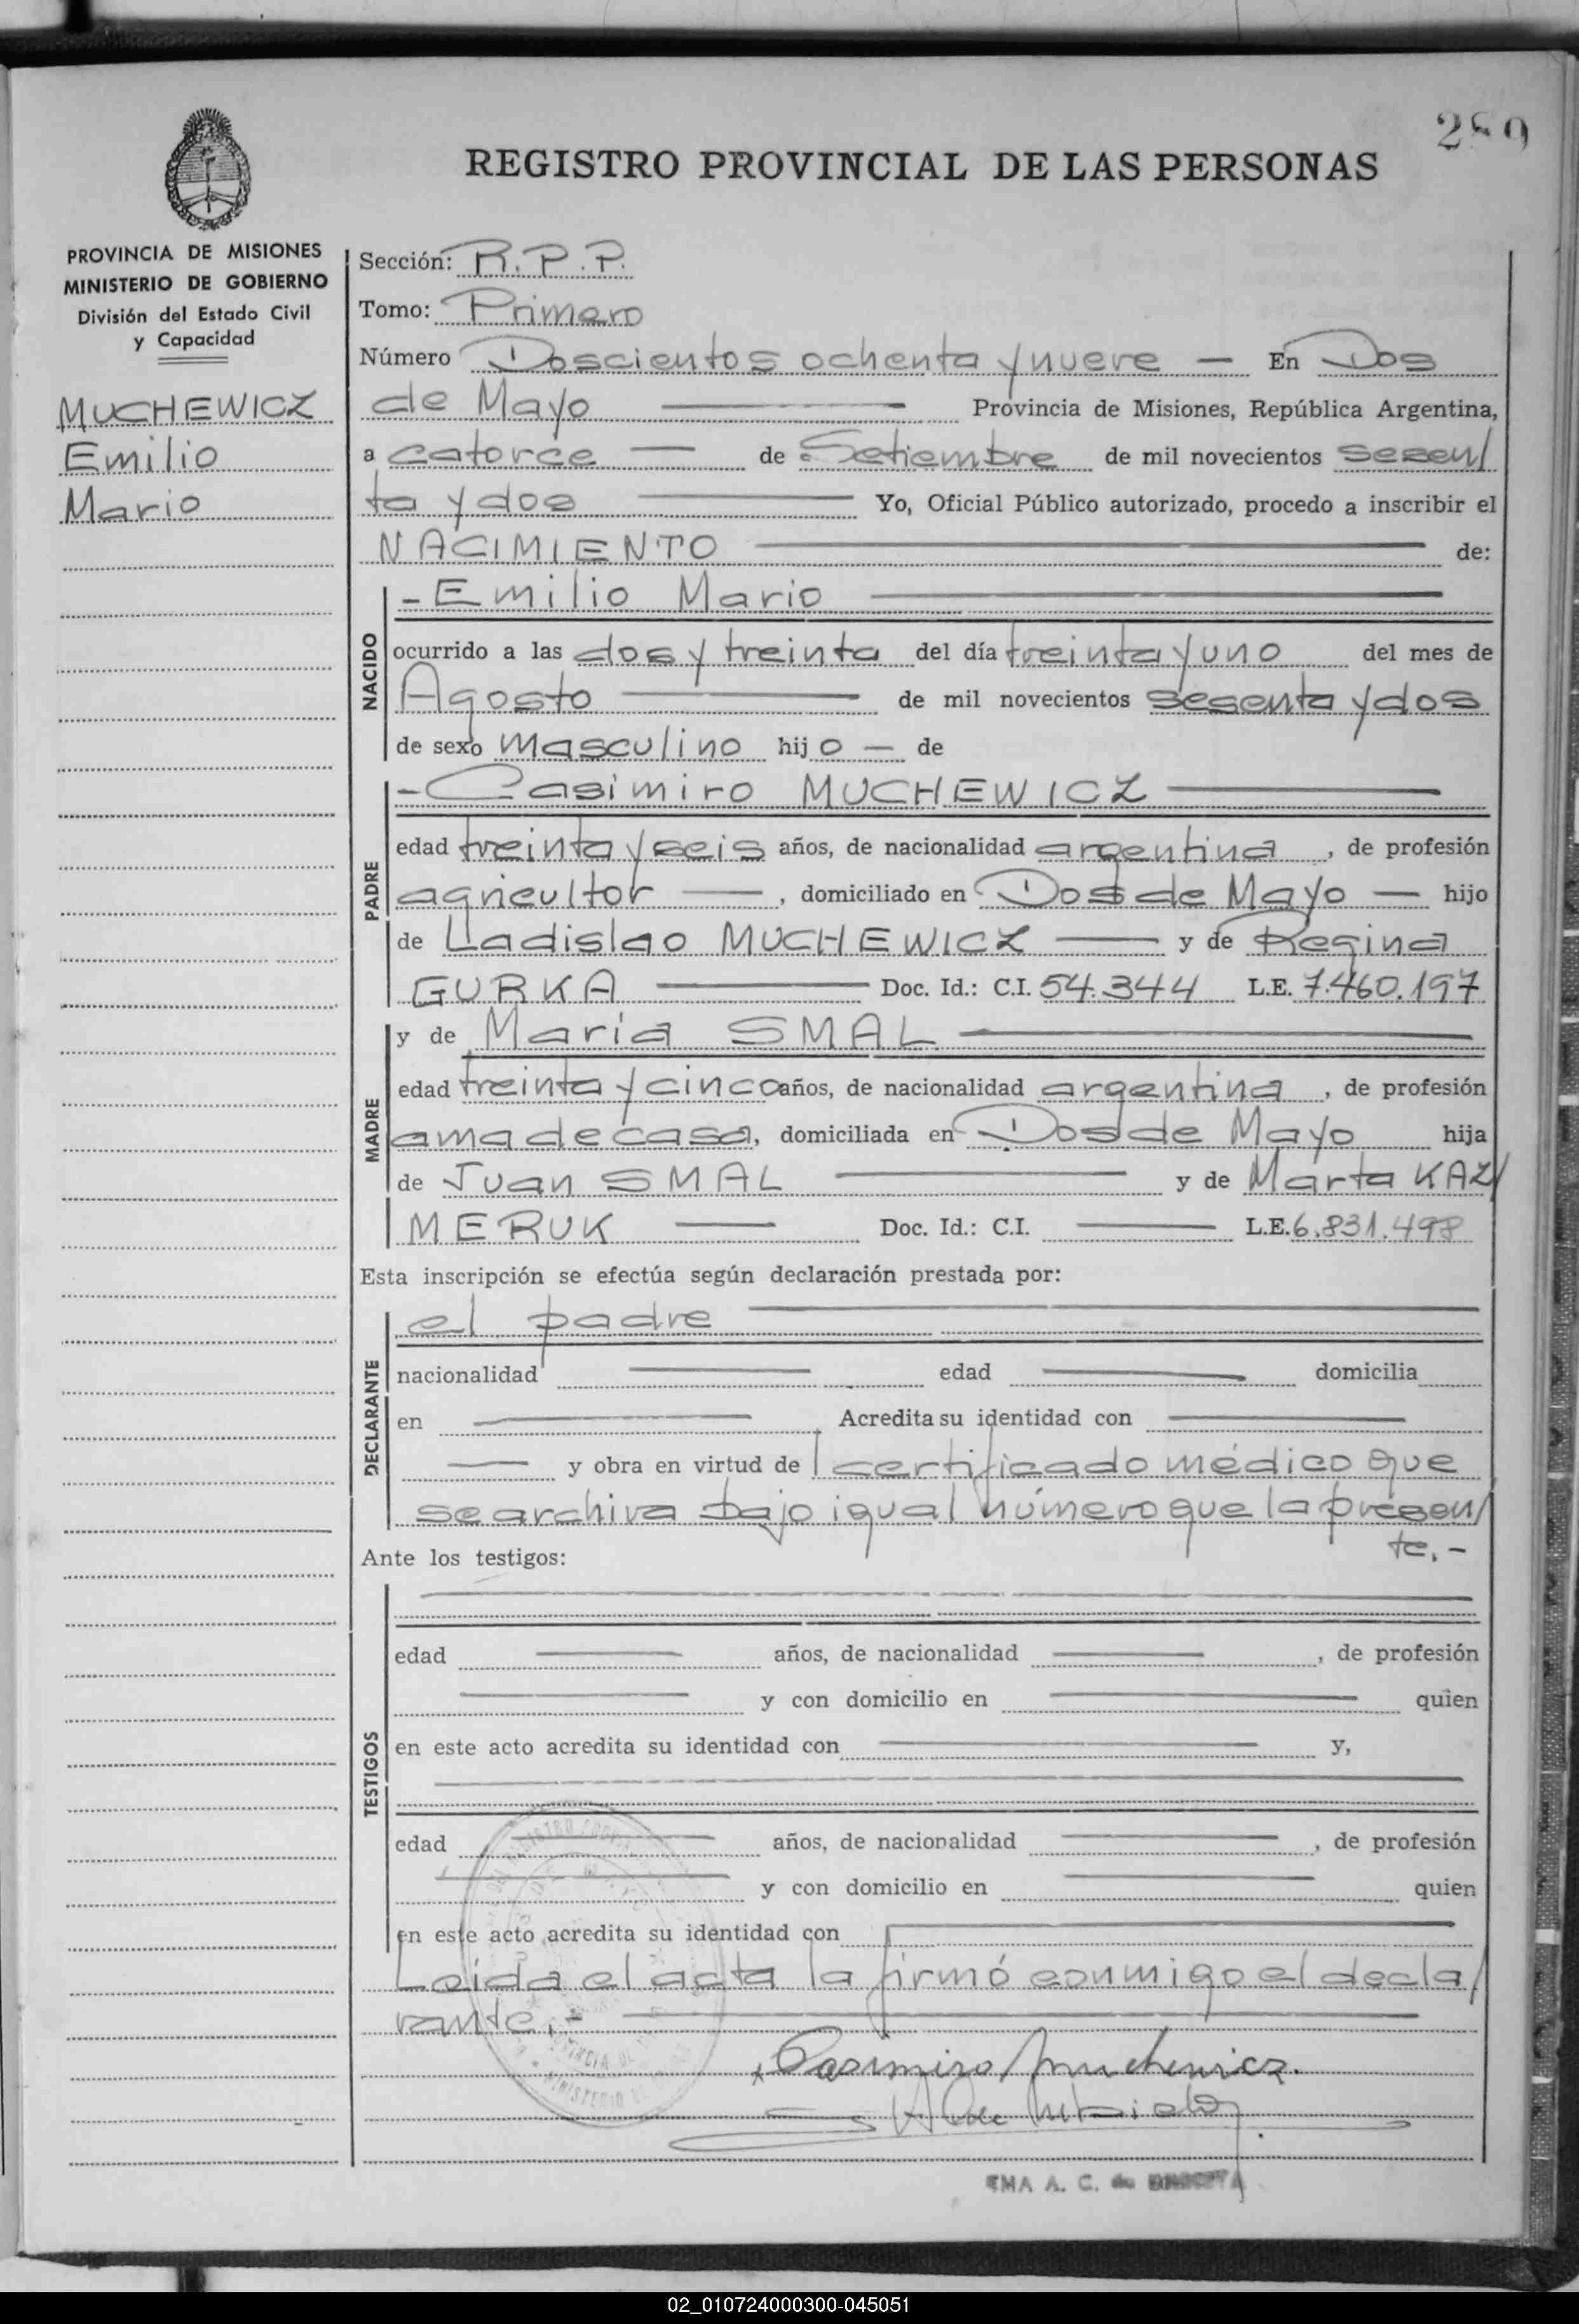 289
REGISTRO PROVINCIAL DE LAS PERSONAS
PROVINCIA DE MISIONES
MINISTERIO DE GOBIERNO
División del Estado Civil
y Capacidad
MUCHEWICZ
Emilio
Mario
Sección: R.P.P.
Tomo: Primero
Número Doscientos ochenta y nueve — En Dos
de Mayo — Provincia de Misiones, República Argentina,
a catorce — de Setiembre de mil novecientos sesen/
ta y dos — Yo, Oficial Público autorizado, procedo a inscribir el
NACIMIENTO — de:
NACIDO
- Emilio Mario —
ocurrido a las dos y treinta del día treinta y uno del mes de
Agosto — de mil novecientos sesenta y dos
de sexo masculino hijo — de
PADRE
- Casimiro MUCHEWICZ —
edad treinta y seis años, de nacionalidad argentina, de profesión
agricultor —, domiciliado en Dos de Mayo — hijo
de Ladislao MUCHEWICZ — y de Regina
GURKA — Doc. Id.: C.I. 54.344 L.E. 7.460.197
MADRE
y de Maria SMAL —
edad treinta y cinco años, de nacionalidad argentina, de profesión
ama de casa, domiciliada en Dos de Mayo hija
de Juan SMAL — y de Marta KAZ/
MERUK — Doc. Id.: C.I. — L.E. 6.831.498
Esta inscripción se efectúa según declaración prestada por:
DECLARANTE
el padre —
nacionalidad — edad — domicilia
en — Acredita su identidad con —
— y obra en virtud de certificado médico que
se archiva bajo igual número que la presen/
te.-
Ante los testigos:
TESTIGOS
edad — años, de nacionalidad —, de profesión
— y con domicilio en — quien
en este acto acredita su identidad con — y,
edad — años, de nacionalidad —, de profesión
— y con domicilio en — quien
en este acto acredita su identidad con —
Leída el acta la firmó conmigo el decla/
rante.- —
Casimiro Muchewicz.
EMA A. C. de
02_010724000300-045051